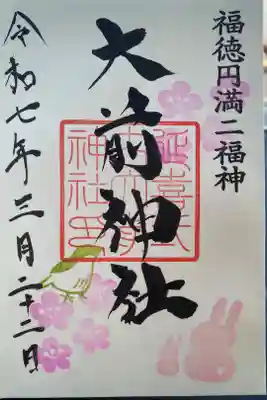 福徳円満二福神
大前神社
延喜式内大前神社印
令和七年三月二十二日